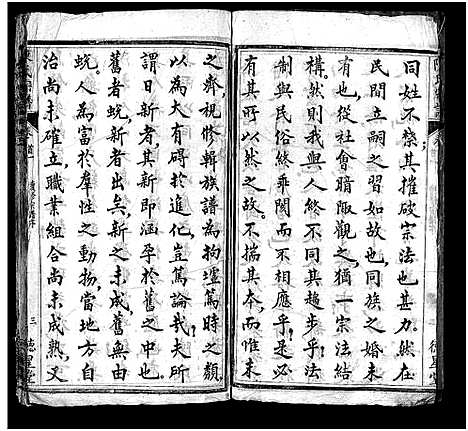 同姓不禁其摧破宗法也甚力然在
民間立嗣之習如故也同族之婚未
有也從社會暗陬觀之猶一宗法結
構然則我與人似不同其趨步乎法
制與民俗終乖閡而不相應乎是蓋
有其所以然之故不揣其本而惟末
之齊視修輯族譜為拘墟篤時之類
以為大有碍於進化豈篤論哉夫所
謂日新即涵孕於舊之中新之未成
舊者蛻新者出矣新之未成舊無由
蛻人為富於羣性之動物當地方自
治尚未確立職業組合尚未成熟又
三
德星堂